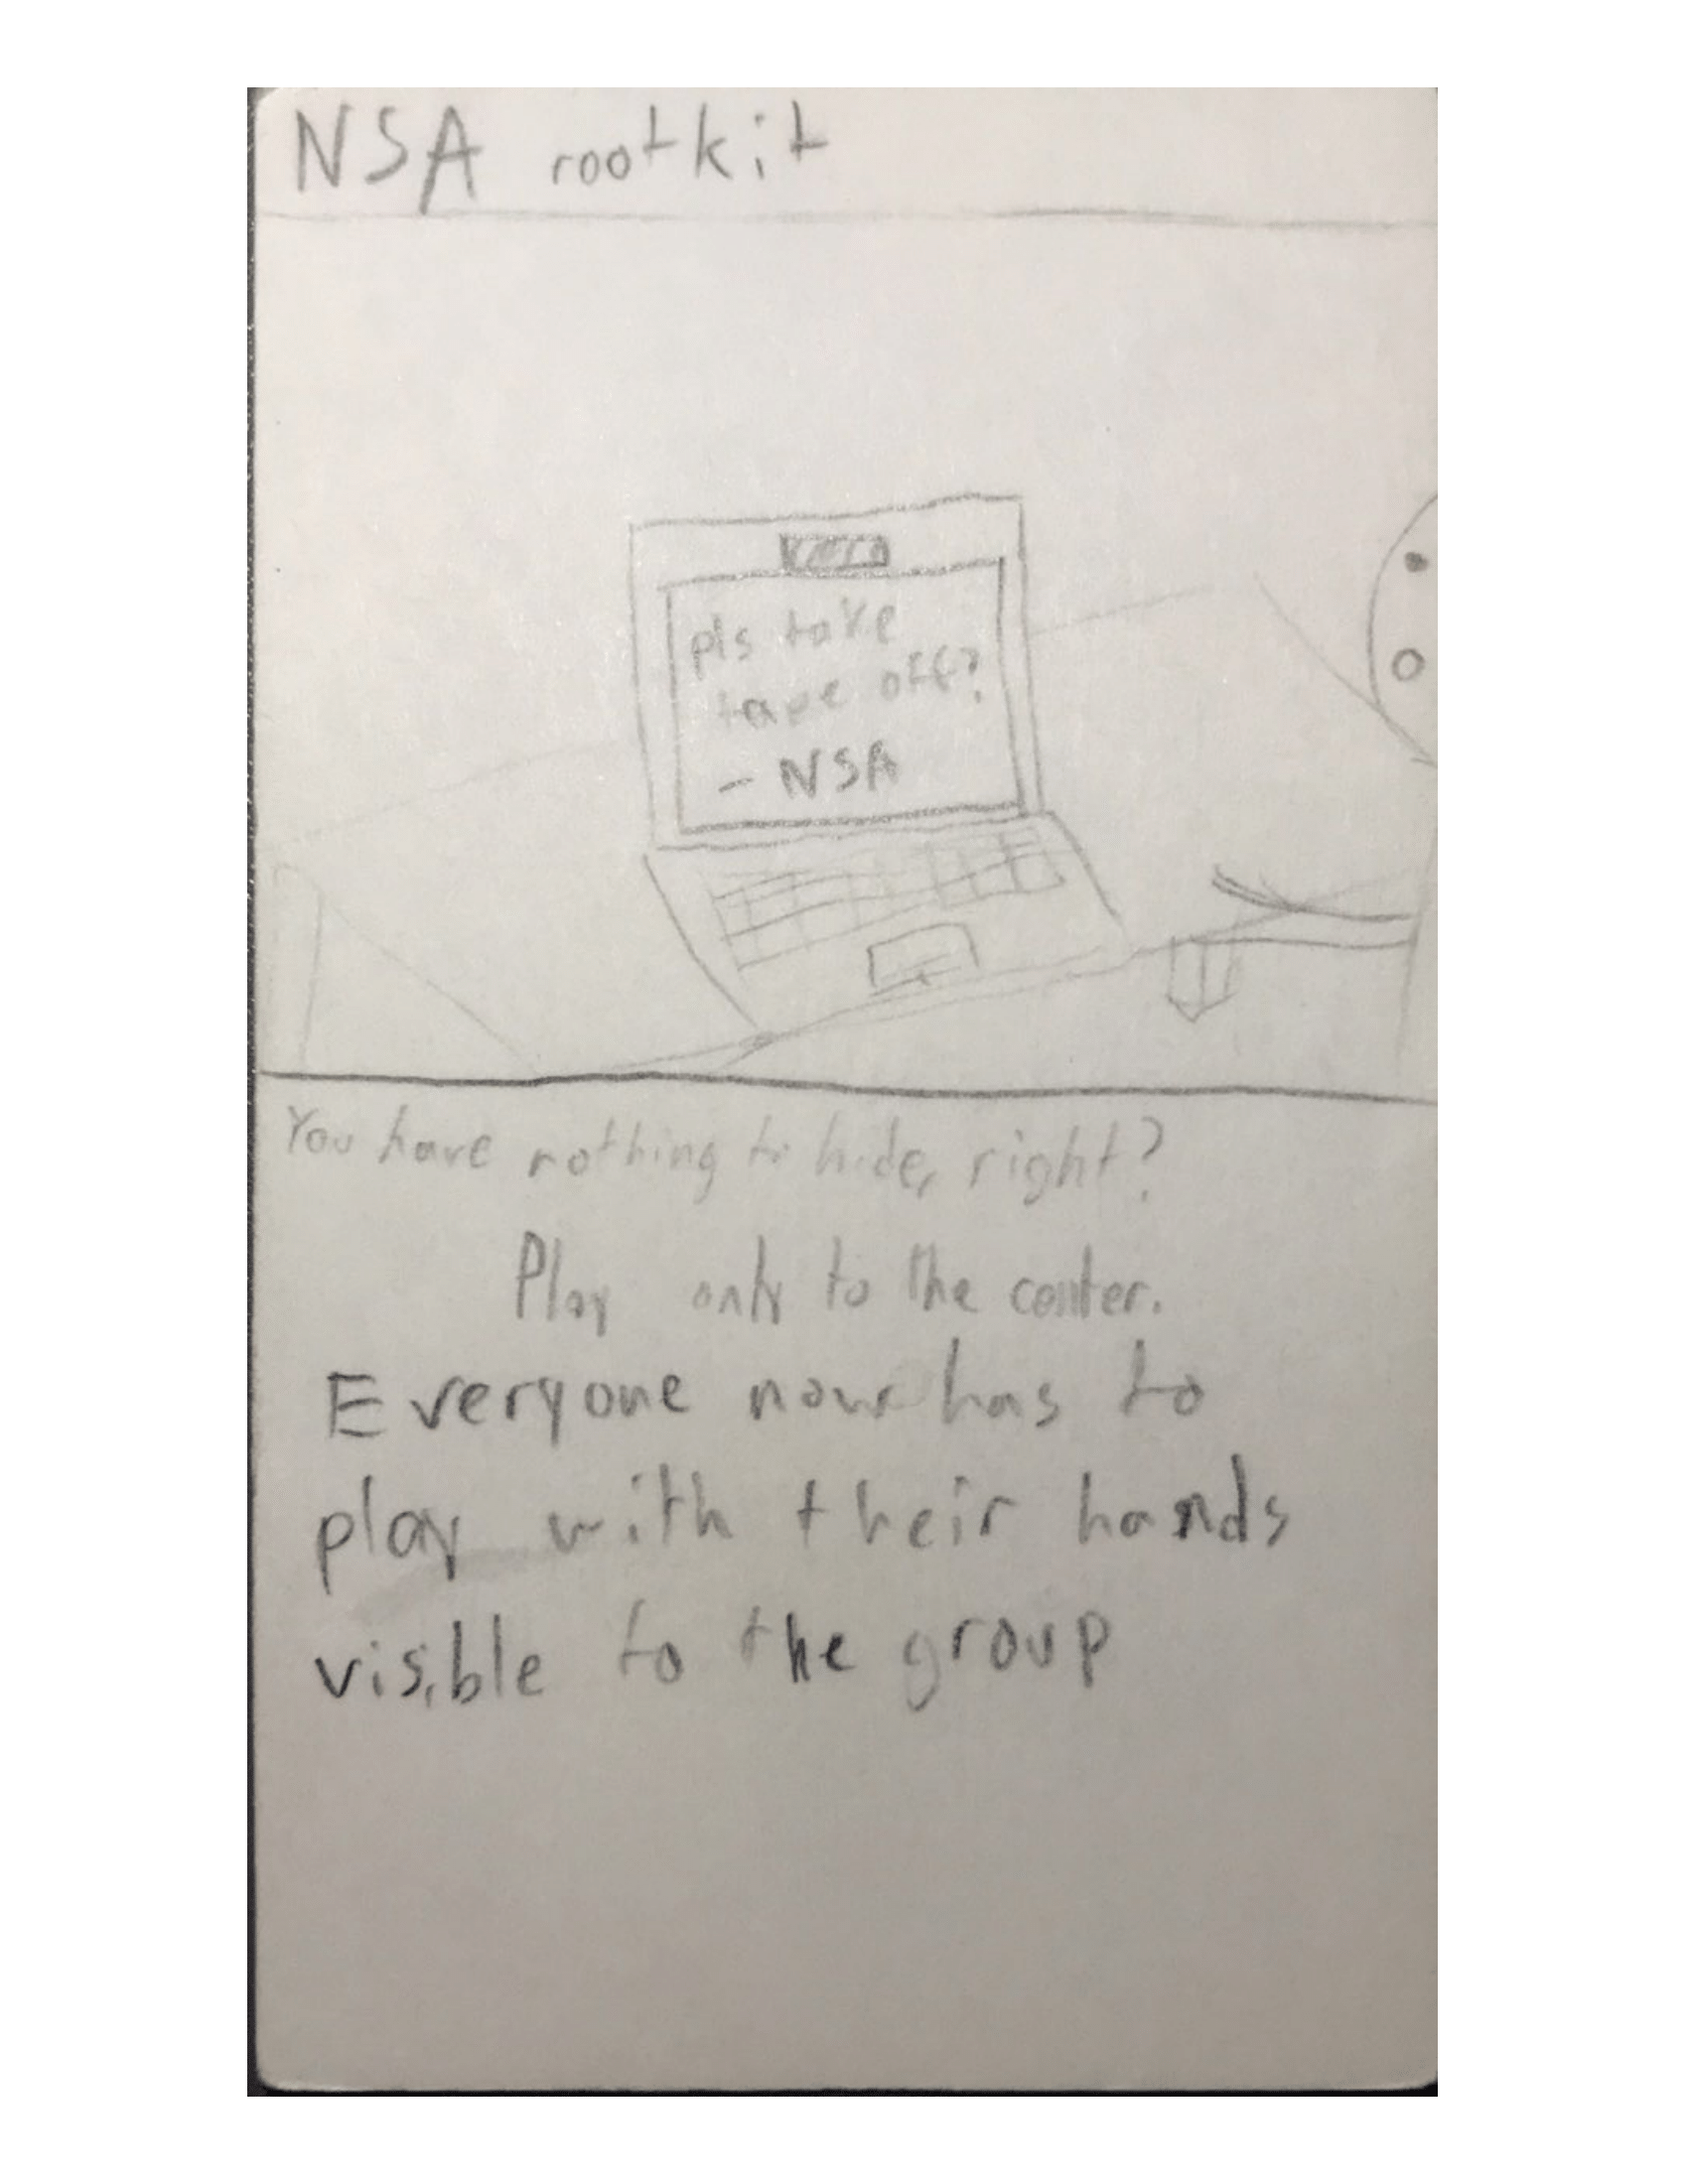 NSA rootkit
pls take
tape off?
- NSA
You have nothing to hide, right?
Play only to the center.
Everyone now has to
play with their hands
visible to the group